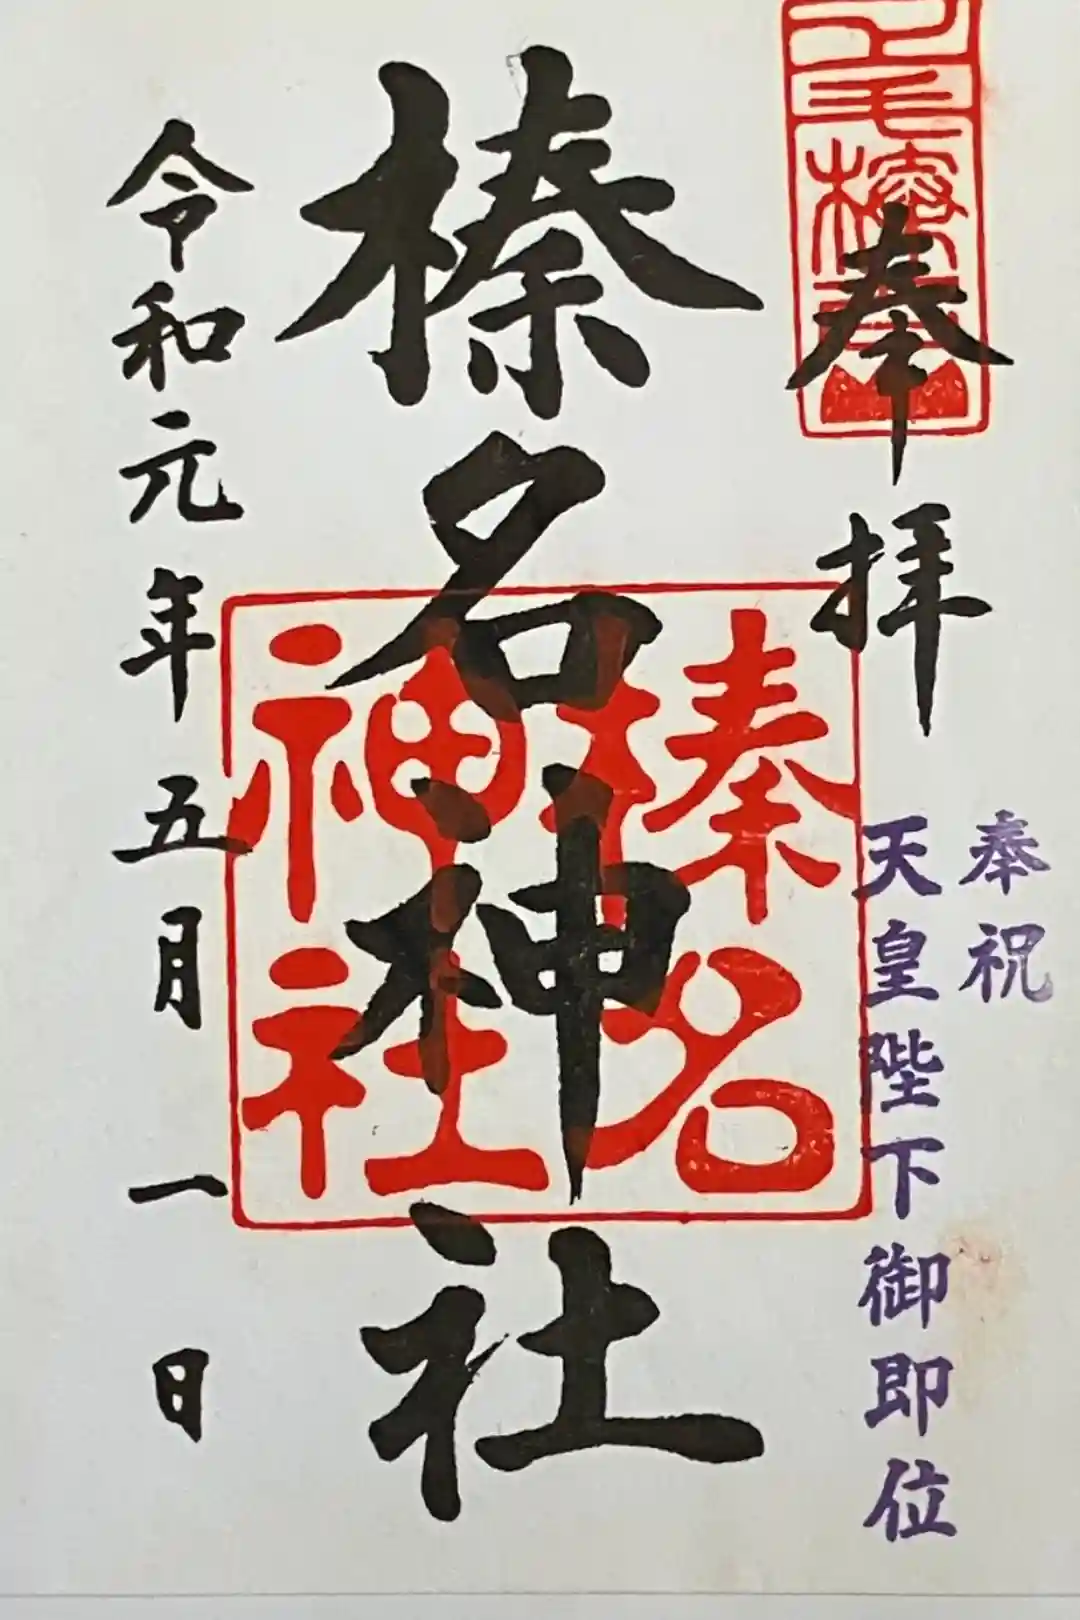 奉拝
奉祝
天皇陛下御即位
榛名神社
榛名
神社
令和元年五月一日